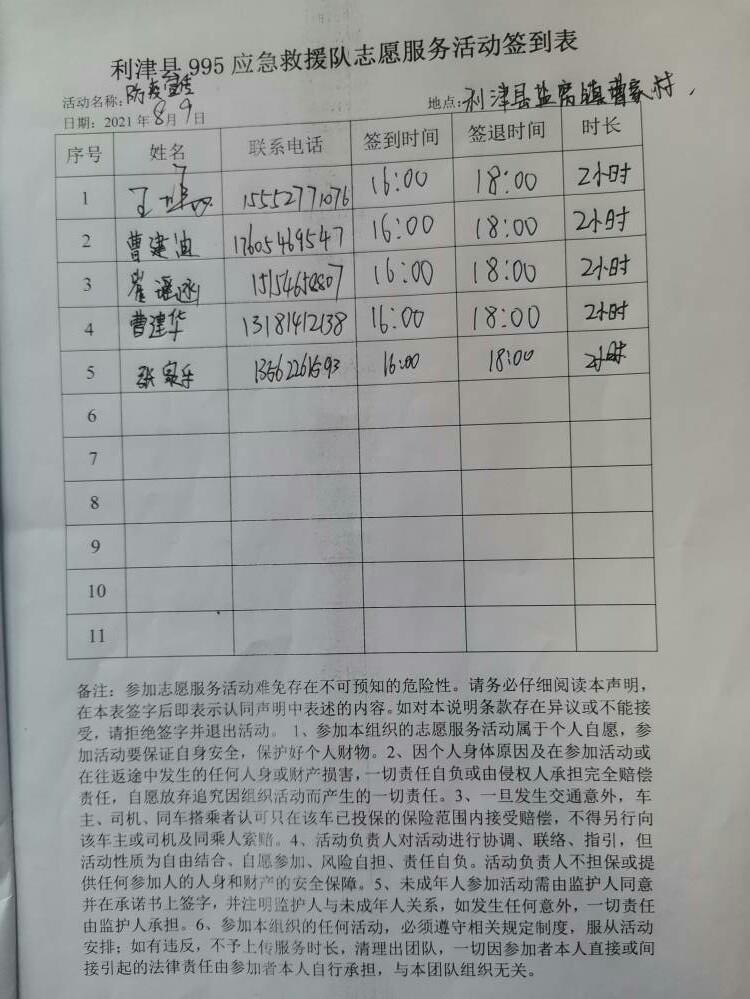 利津县995应急救援队志愿服务活动签到表
活动名称:防疫宣传
地点:利津县盐窝镇曹家村.
日期: 2021年8月9日
序号 姓名 联系电话 签到时间 签退时间 时长
1 王 15552771076 16:00 18:00 2小时
2 曹建迪 17605469547 16:00 18:00 2小时
3 崔 16:00 18:00 2小时
4 曹建华 13181412138 16:00 18:00 2小时
5 张家乐 16:00 18:00 2小时
6
7
8
9
10
11
备注：参加志愿服务活动难免存在不可预知的危险性。请务必仔细阅读本声明，
在本表签字后即表示认同声明中表述的内容。如对本说明条款存在异议或不能接
受，请拒绝签字并退出活动。 1、参加本组织的志愿服务活动属于个人自愿，参
加活动要保证自身安全，保护好个人财物。2、因个人身体原因及在参加活动或
在往返途中发生的任何人身或财产损害，一切责任自负或由侵权人承担完全赔偿
责任，自愿放弃追究因组织活动而产生的一切责任。3、一旦发生交通意外，车
主、司机、同车搭乘者认可只在该车已投保的保险范围内接受赔偿，不得另行向
该车主或司机及同乘人索赔。4、活动负责人对活动进行协调、联络、指引，但
活动性质为自由结合、自愿参加、风险自担、责任自负。活动负责人不担保或提
供任何参加人的人身和财产的安全保障。5、未成年人参加活动需由监护人同意
并在承诺书上签字，并注明监护人与未成年人关系，如发生任何意外，一切责任
由监护人承担。6、参加本组织的任何活动，必须遵守相关规定制度，服从活动
安排；如有违反，不予上传服务时长，清理出团队，一切因参加者本人直接或间
接引起的法律责任由参加者本人自行承担，与本团队组织无关。